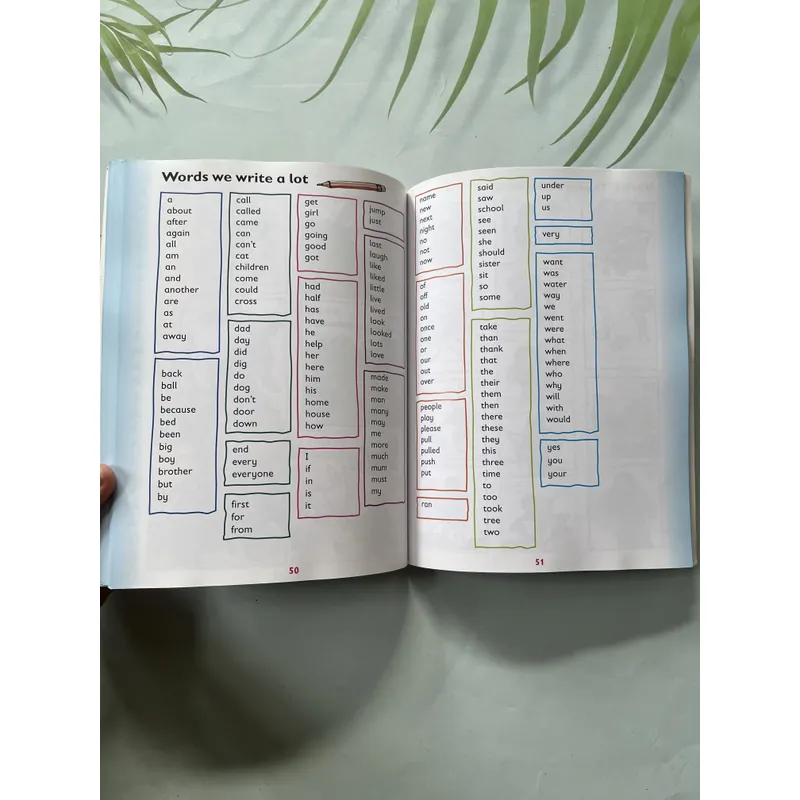 Words we write a lot
a
about
after
again
all
am
an
and
another
are
as
at
away
back
ball
be
because
bed
been
big
boy
brother
but
by
call
called
came
can
can't
cat
children
come
could
cross
dad
day
did
dig
do
dog
don't
door
down
end
every
everyone
first
for
from
get
girl
go
going
good
got
had
half
has
have
he
help
her
here
him
his
home
house
how
I
if
in
is
it
jump
just
last
laugh
like
liked
little
live
lived
look
looked
lots
love
made
make
man
many
may
me
more
much
mum
must
my
50
name
new
next
night
no
not
now
of
off
old
on
once
one
or
our
out
over
people
play
please
pull
pulled
push
put
ran
said
saw
school
see
seen
she
should
sister
sit
so
some
take
than
thank
that
the
their
them
then
there
these
they
this
three
time
to
too
took
tree
two
under
up
us
very
want
was
water
way
we
went
were
what
when
where
who
why
will
with
would
yes
you
your
51